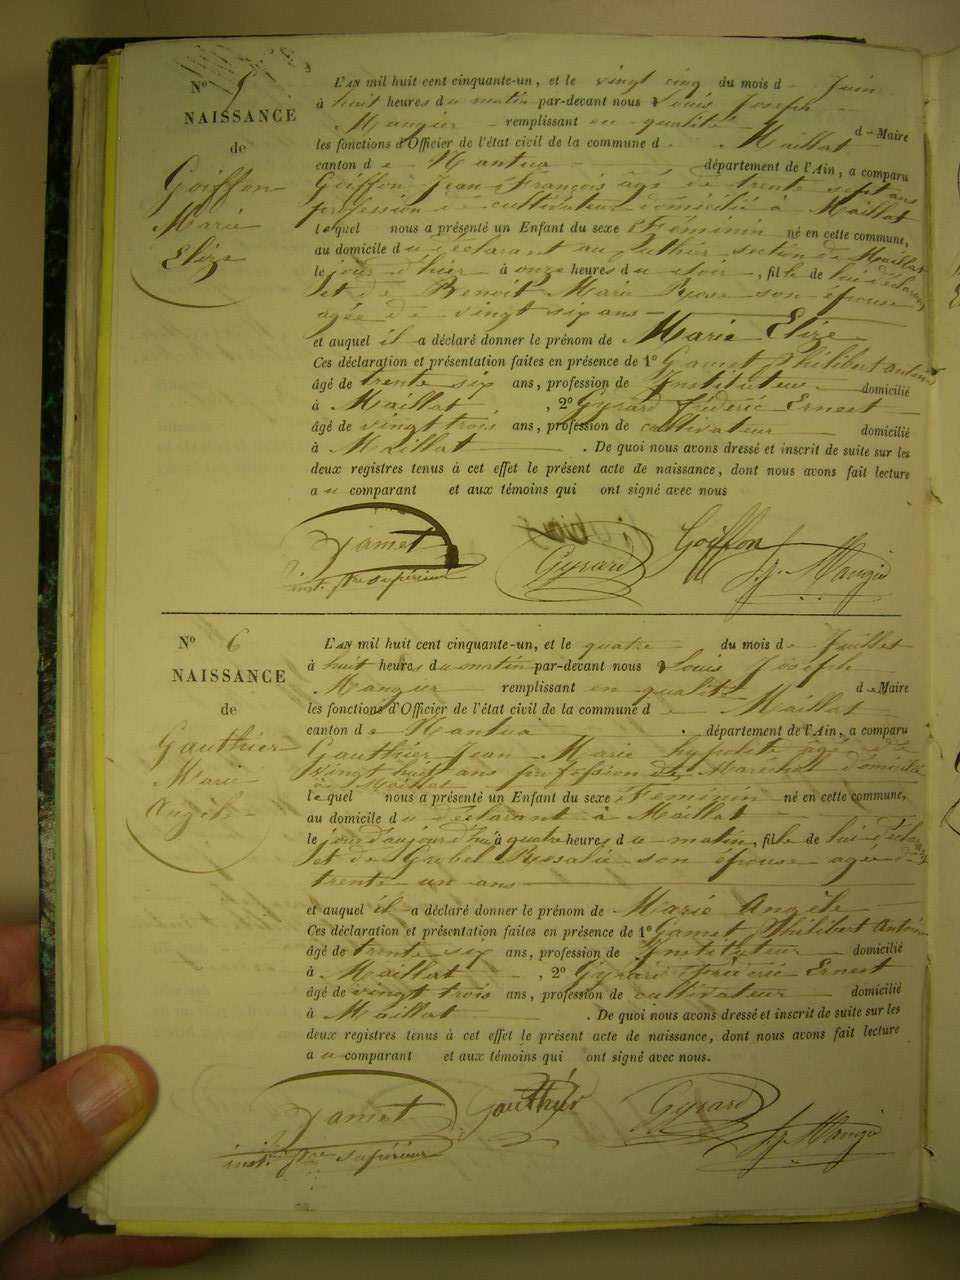 N° 5
NAISSANCE
de
Goiffon
Marie
Elize
L'AN mil huit cent cinquante-un, et le vingt cinq du mois d Juin
à huit heures du matin par-devant nous Louis Joseph
Mangier remplissant en qualité d Maire
les fonctions d'Officier de l'état civil de la commune d Maillat
canton de Nantua département de l'Ain, a comparu
Goiffon Jean François âgé de trente sept ans
profession de cultivateur domicilié à Maillat
lequel nous a présenté un Enfant du sexe Féminin né en cette commune,
au domicile du déclarant au section de Maillat
le jour d'hier à onze heures du soir, fille de lui déclarant
et de Benoit Marie Rose son épouse
agée de vingt six ans
et auquel il a déclaré donner le prénom de Marie Elize
Ces déclaration et présentation faites en présence de 1° Gamet Philibert Antoine
âgé de trente six ans, profession de Instituteur domicilié
à Maillat, 2° Gyrard Fréderic Ernest
âgé de vingt trois ans, profession de cultivateur domicilié
à Maillat. De quoi nous avons dressé et inscrit de suite sur les
deux registres tenus à cet effet le présent acte de naissance, dont nous avons fait lecture
au comparant et aux témoins qui ont signé avec nous
Gamet Gyrard Goiffon
supérieur
N° 6
NAISSANCE
de
Gauthier
Marie
Angèle
L'AN mil huit cent cinquante-un, et le quatre du mois de Juillet
à huit heures du matin par-devant nous Louis Joseph
Mangier remplissant en qualité de Maire
les fonctions d'Officier de l'état civil de la commune d Maillat
canton de Nantua département de l'Ain, a comparu
Gauthier Jean Marie hypolite âgé de
vingt huit ans profession de Maréchal domicilié
à Maillat
lequel nous a présenté un Enfant du sexe Féminin né en cette commune,
au domicile du déclarant à Maillat
le jour d'aujourd'hui à quatre heures du matin, fille de lui déclarant
et de Grobel Rosalie son épouse agée de
trente un ans
et auquel il a déclaré donner le prénom de Marie Angèle
Ces déclaration et présentation faites en présence de 1° Gamet Philibert Antoine
âgé de trente six ans, profession de Instituteur domicilié
à Maillat, 2° Gyrard Fréderic Ernest
âgé de vingt trois ans, profession de cultivateur domicilié
à Maillat. De quoi nous avons dressé et inscrit de suite sur les
deux registres tenus à cet effet le présent acte de naissance, dont nous avons fait lecture
au comparant et aux témoins qui ont signé avec nous.
Gamet Gauthier Gyrard
supérieur